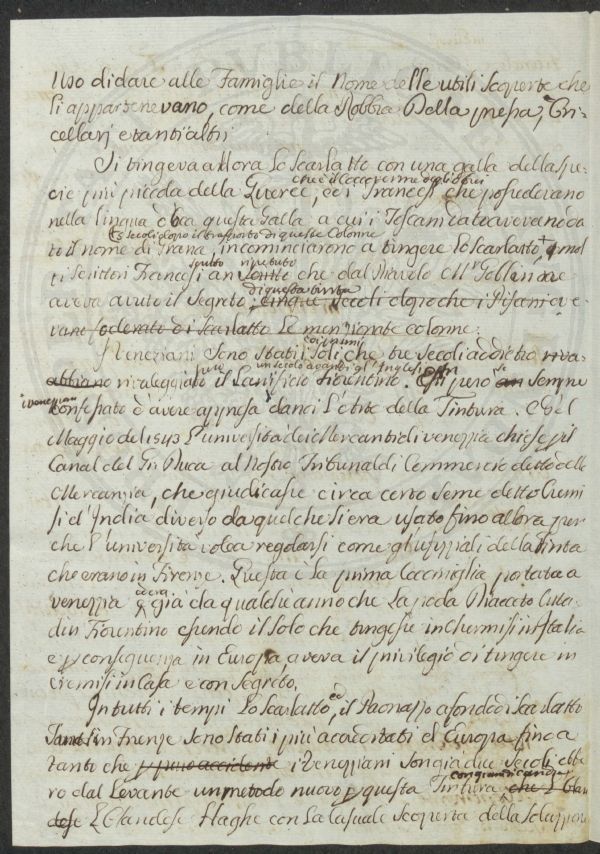 Uso di dare alle Famiglie il Nome delle utili scoperte che
li appartenevano, come della Robbia Della presa, Ori-
cellarj e tanti altri
Si tingeva allora lo Scarlatto con una galla della spe-
cie più piccola della Querce, ed i Francesi, che possedevano
nella lingua d'oca questa Galla a cui i Toscani dato avevano da
to il nome di Grana, incominciarono a tingere lo Scarlatto, e mol
ti Scrittori Francesi an scritto che dal Secolo Mr Gobbin ne
di questa tinta
aveva avuto il segreto, cinque secoli dopo che i Pisani ave-
vano foderato di Scarlatto le menzionate colonne.
Veneziani sono stati i soli che tre secoli addietro riva-
abbiano rivaleggiato il Lanificio Fiorentino. però an sempre
i veneziani
Confessato d'avere appresa da noi l'arte della Tintura. Nel
Maggio del 1543 l'università dei Mercanti di venezzia chiese p il
Canal del Gn Duca al Nostro Tribunal di Commercio detto della
Mercanzia, che giudicasse circa certo seme detto Cremi
si d'India diverso da quel che si era usato fino allora per
che l'università volea regolarsi come gli uffiziali della Tinta
che erano in Firenze. Questa è la prima Cocciniglia portata a
venezzia già da qualche anno che la
din Fiorentino essendo il solo che tingesse in chermisi in Italia
e p conseguenza in Europa aveva il privilegio di tingere in
cremisi in Casa e con segreto.
In tutti i tempi lo Scarlatto, ed il Paonazzo a fondo di Scarlatto
in Firenze sono stati i più accreditati d'Europa fino a
tanto che p puro accidente i Veneziani son già due secoli ebbe
ro dal Levante un metodo nuovo p questa Tintura
l'Olandese Haghe con la casuale scoperta della soluzione